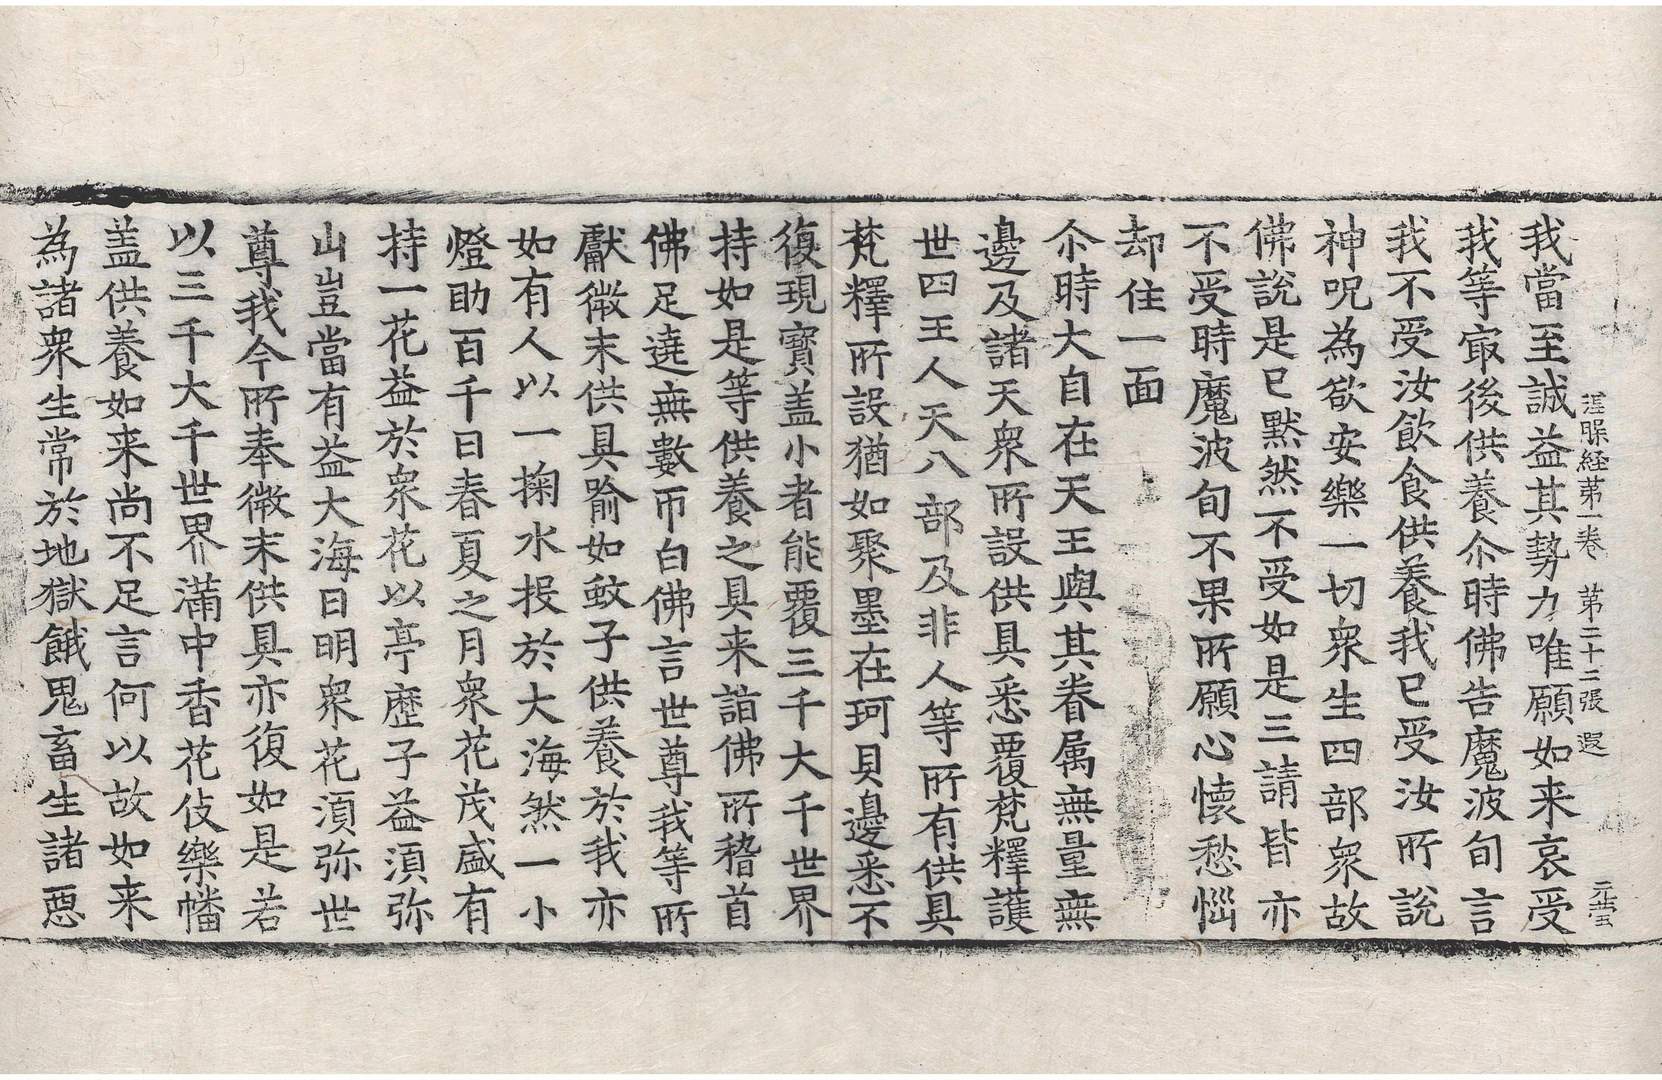 涅槃経第一卷 第二十二張 遐 元瑩
我當至誠益其勢力唯願如来哀受
我等㝡後供養尒時佛告魔波旬言
我不受汝飲食供養我已受汝所說
神呪為欲安樂一切衆生四部衆故
佛說是已默然不受如是三請皆亦
不受時魔波旬不果所願心懷愁惱
却住一面
尒時大自在天王與其眷属無量無
邊及諸天衆所設供具悉覆梵釋護
世四王人天八部及非人等所有供具
梵釋所設猶如聚墨在珂貝邊悉不
復現寳盖小者能覆三千大千世界
持如是等供養之具来詣佛所稽首
佛足遶無數帀白佛言世尊我等所
獻微末供具喻如蚊子供養於我亦
如有人以一掬水投於大海然一小
燈助百千日春夏之月衆花茂盛有
持一花益於衆花以亭歷子益湏弥
山豈當有益大海日明衆花湏弥世
尊我今所奉微末供具亦復如是若
以三千大千世界滿中香花伎樂幡
盖供養如来尚不足言何以故如来
為諸衆生常於地獄餓鬼畜生諸惡